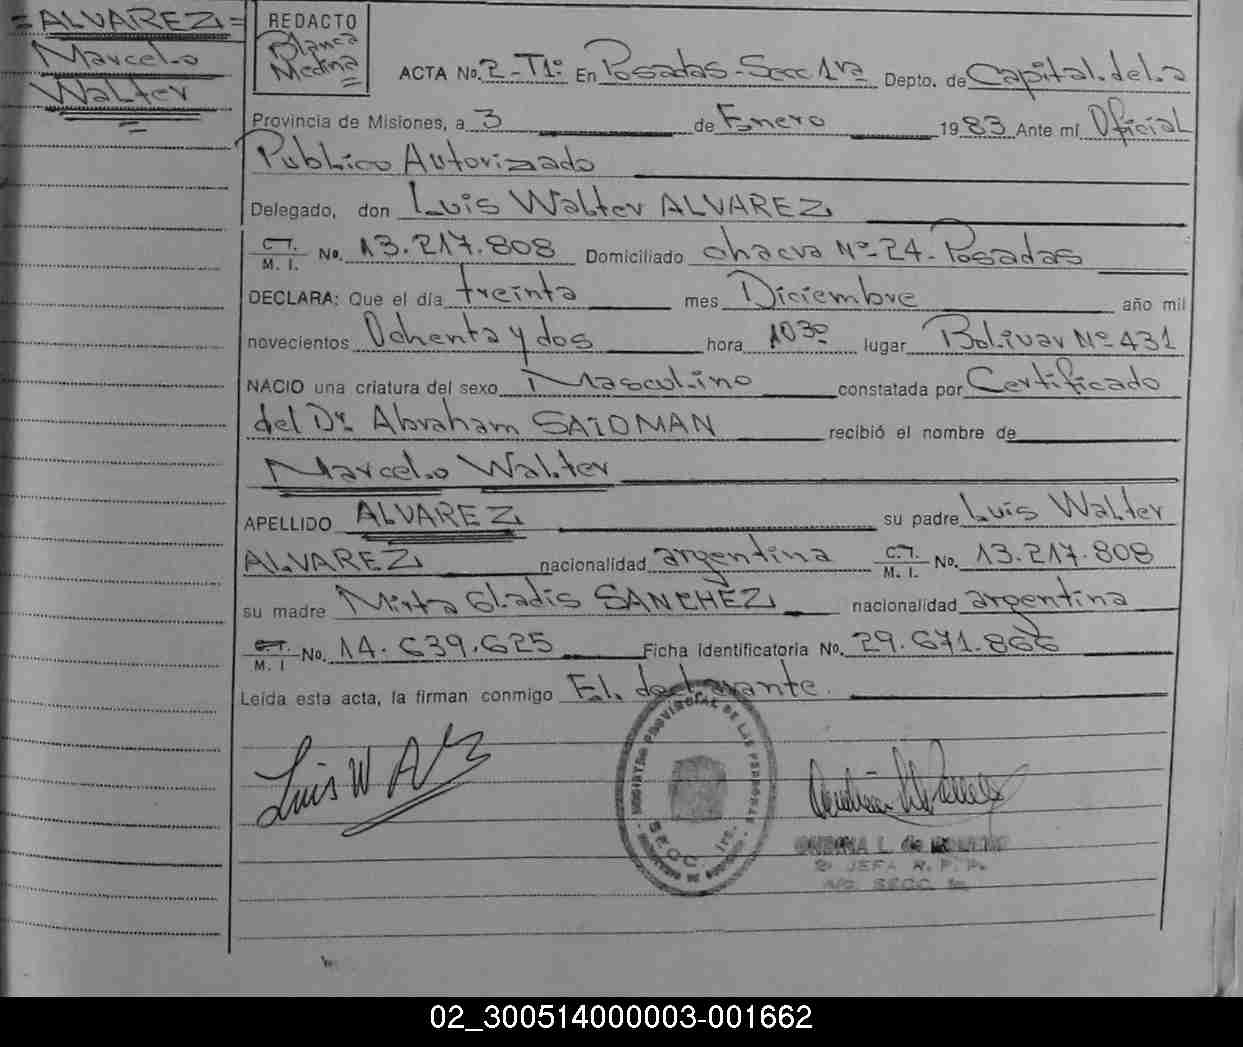 =ALVAREZ=
Marcelo
Walter
REDACTO
Blanca
Medina
ACTA No. 2-T1º En Posadas-Secc 1ra Depto. de Capital.del.a
Provincia de Misiones, a 3 de Enero 1983 Ante mí Oficial
Publico Autorizado
Delegado, don Luis Walter ALVAREZ
C.I.
M. I. No. 13.217.808 Domiciliado chacra Nº-24-Posadas
DECLARA: Que el día treinta mes Diciembre año mil
novecientos Ochenta y dos hora 1030 lugar Bolivar Nº 431
NACIO una criatura del sexo Masculino constatada por Certificado
del Dr. Abraham recibió el nombre de
Marcelo Walter
APELLIDO ALVAREZ su padre Luis Walter
ALVAREZ nacionalidad argentina C.I.
M. I. No. 13.217.808
su madre Mirta Gladis SANCHEZ nacionalidad argentina
C.I.
M. I No. 14.639.625 Ficha Identificatoria No. 29.671.866
Leída esta acta, la firman conmigo El. declarante.
Luis W Alv
REGISTRO PROVINCIAL DE LAS PERSONAS
SECC. 1ra.
L. de
2º JEFA R. P. P.
A/C SECC. 1a
02_300514000003-001662